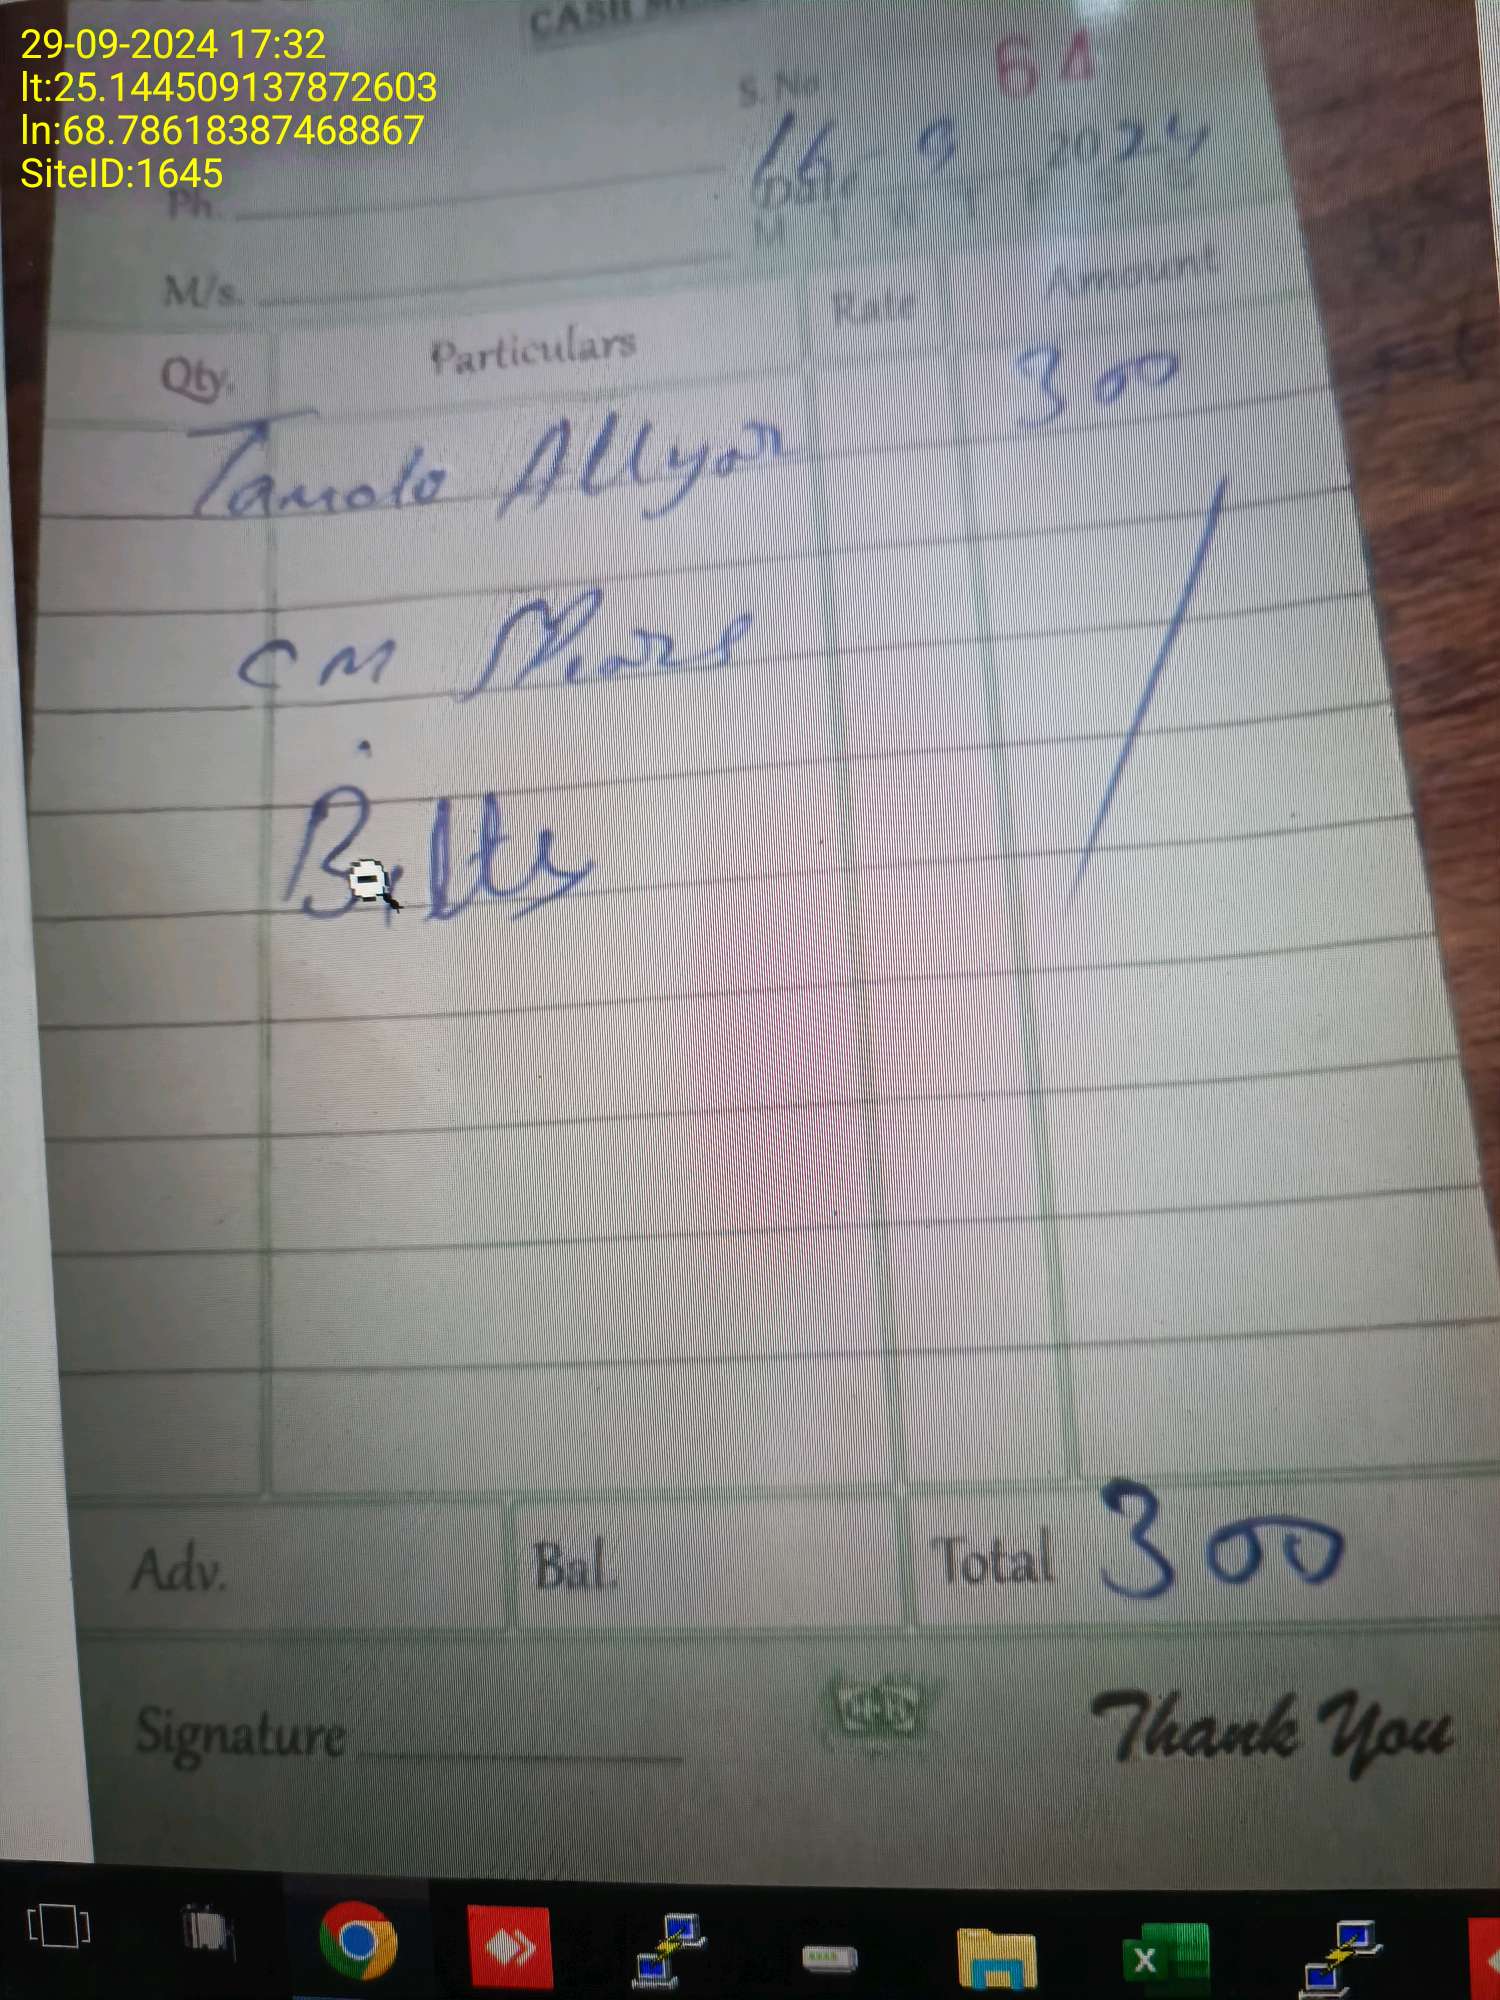 29-09-2024 17:32
lt:25.144509137872603
ln:68.78618387468867
SiteID:1645
CASH
S.No 64
Date 16-9 2024
Ph.
M T W T F S S
M/s.
Qty. Particulars Rate Amount
300
Tando Allyar
CM
Bills
Adv. Bal. Total 300
Signature Thank You